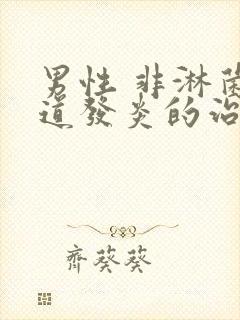 男性 非淋菌
道發炎的治
齊葵葵